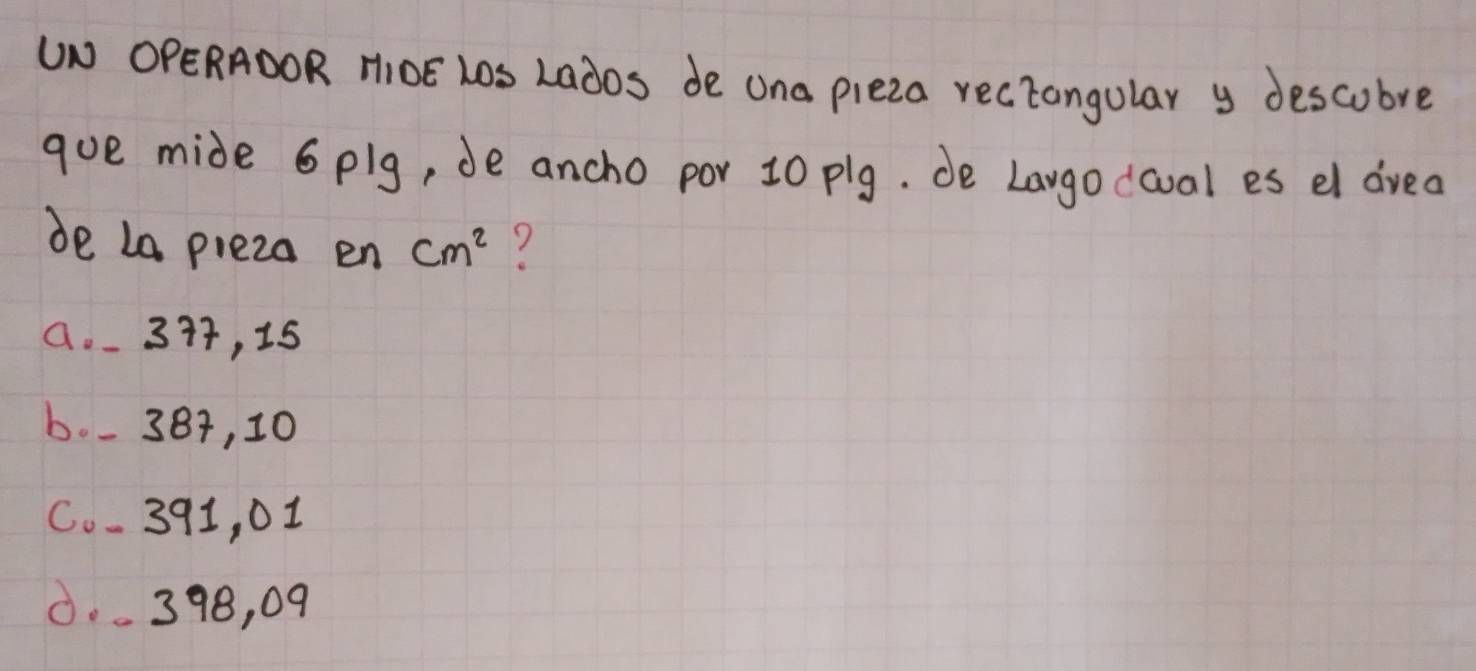 UN OPERADOR MIDE LOS LADOS de una pieza rectangular y descubre
que mide 6 plg, de ancho por 10 plg. de Largo ¿cual es el área
de la pieza en cm²?
a.- 377,15
b.- 387,10
c.- 391,01
d.- 398,09